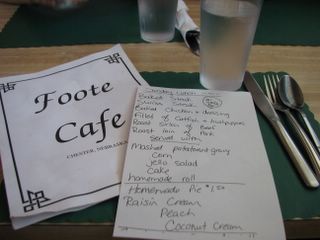 Foote
Cafe
CHESTER, NEBRASKA
Sunday Lunch
Baked Steak
Swiss Steak
Baked Chicken & dressing
Filled of Catfish & hushpuppies
Roast Sirloin of Beef
Roast loin of Pork
served with
Mashed potatoes + gravy
Corn
jello salad
Cake
homemade roll
Homemade Pie $1.50
Raisin Cream
Peach
Coconut Cream